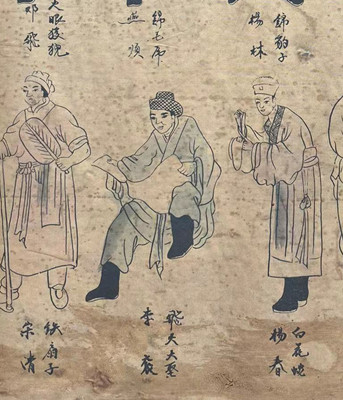 錦豹子
楊林
錦毛虎
燕順
火眼狻猊
邓飛
白花蛇
楊春
飛天大圣
李袞
鉄扇子
宋清